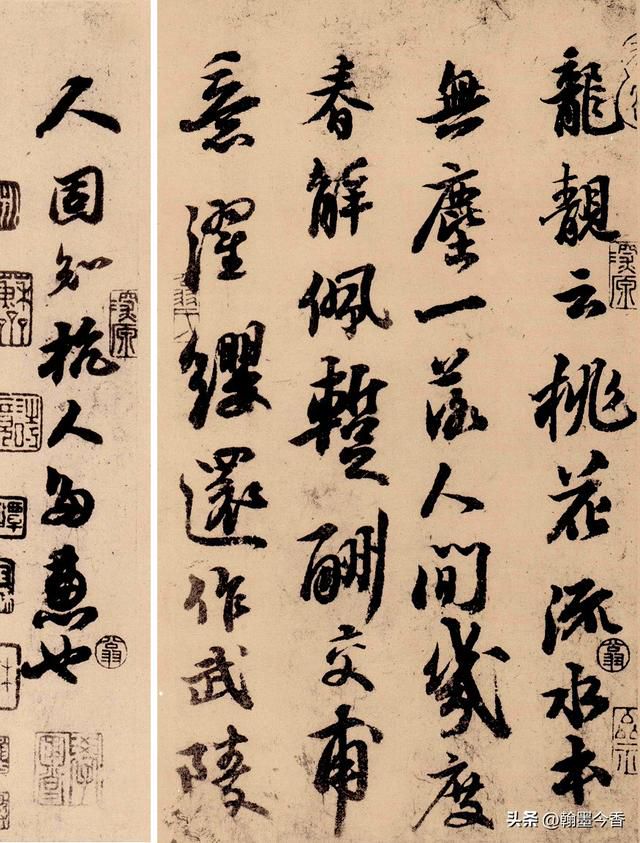 龍靚云桃花流水本
無塵一落人間幾度
春解佩蹔酬交甫
意濯纓還作武陵
人固知杭人多慧也
头条 @翰墨今香